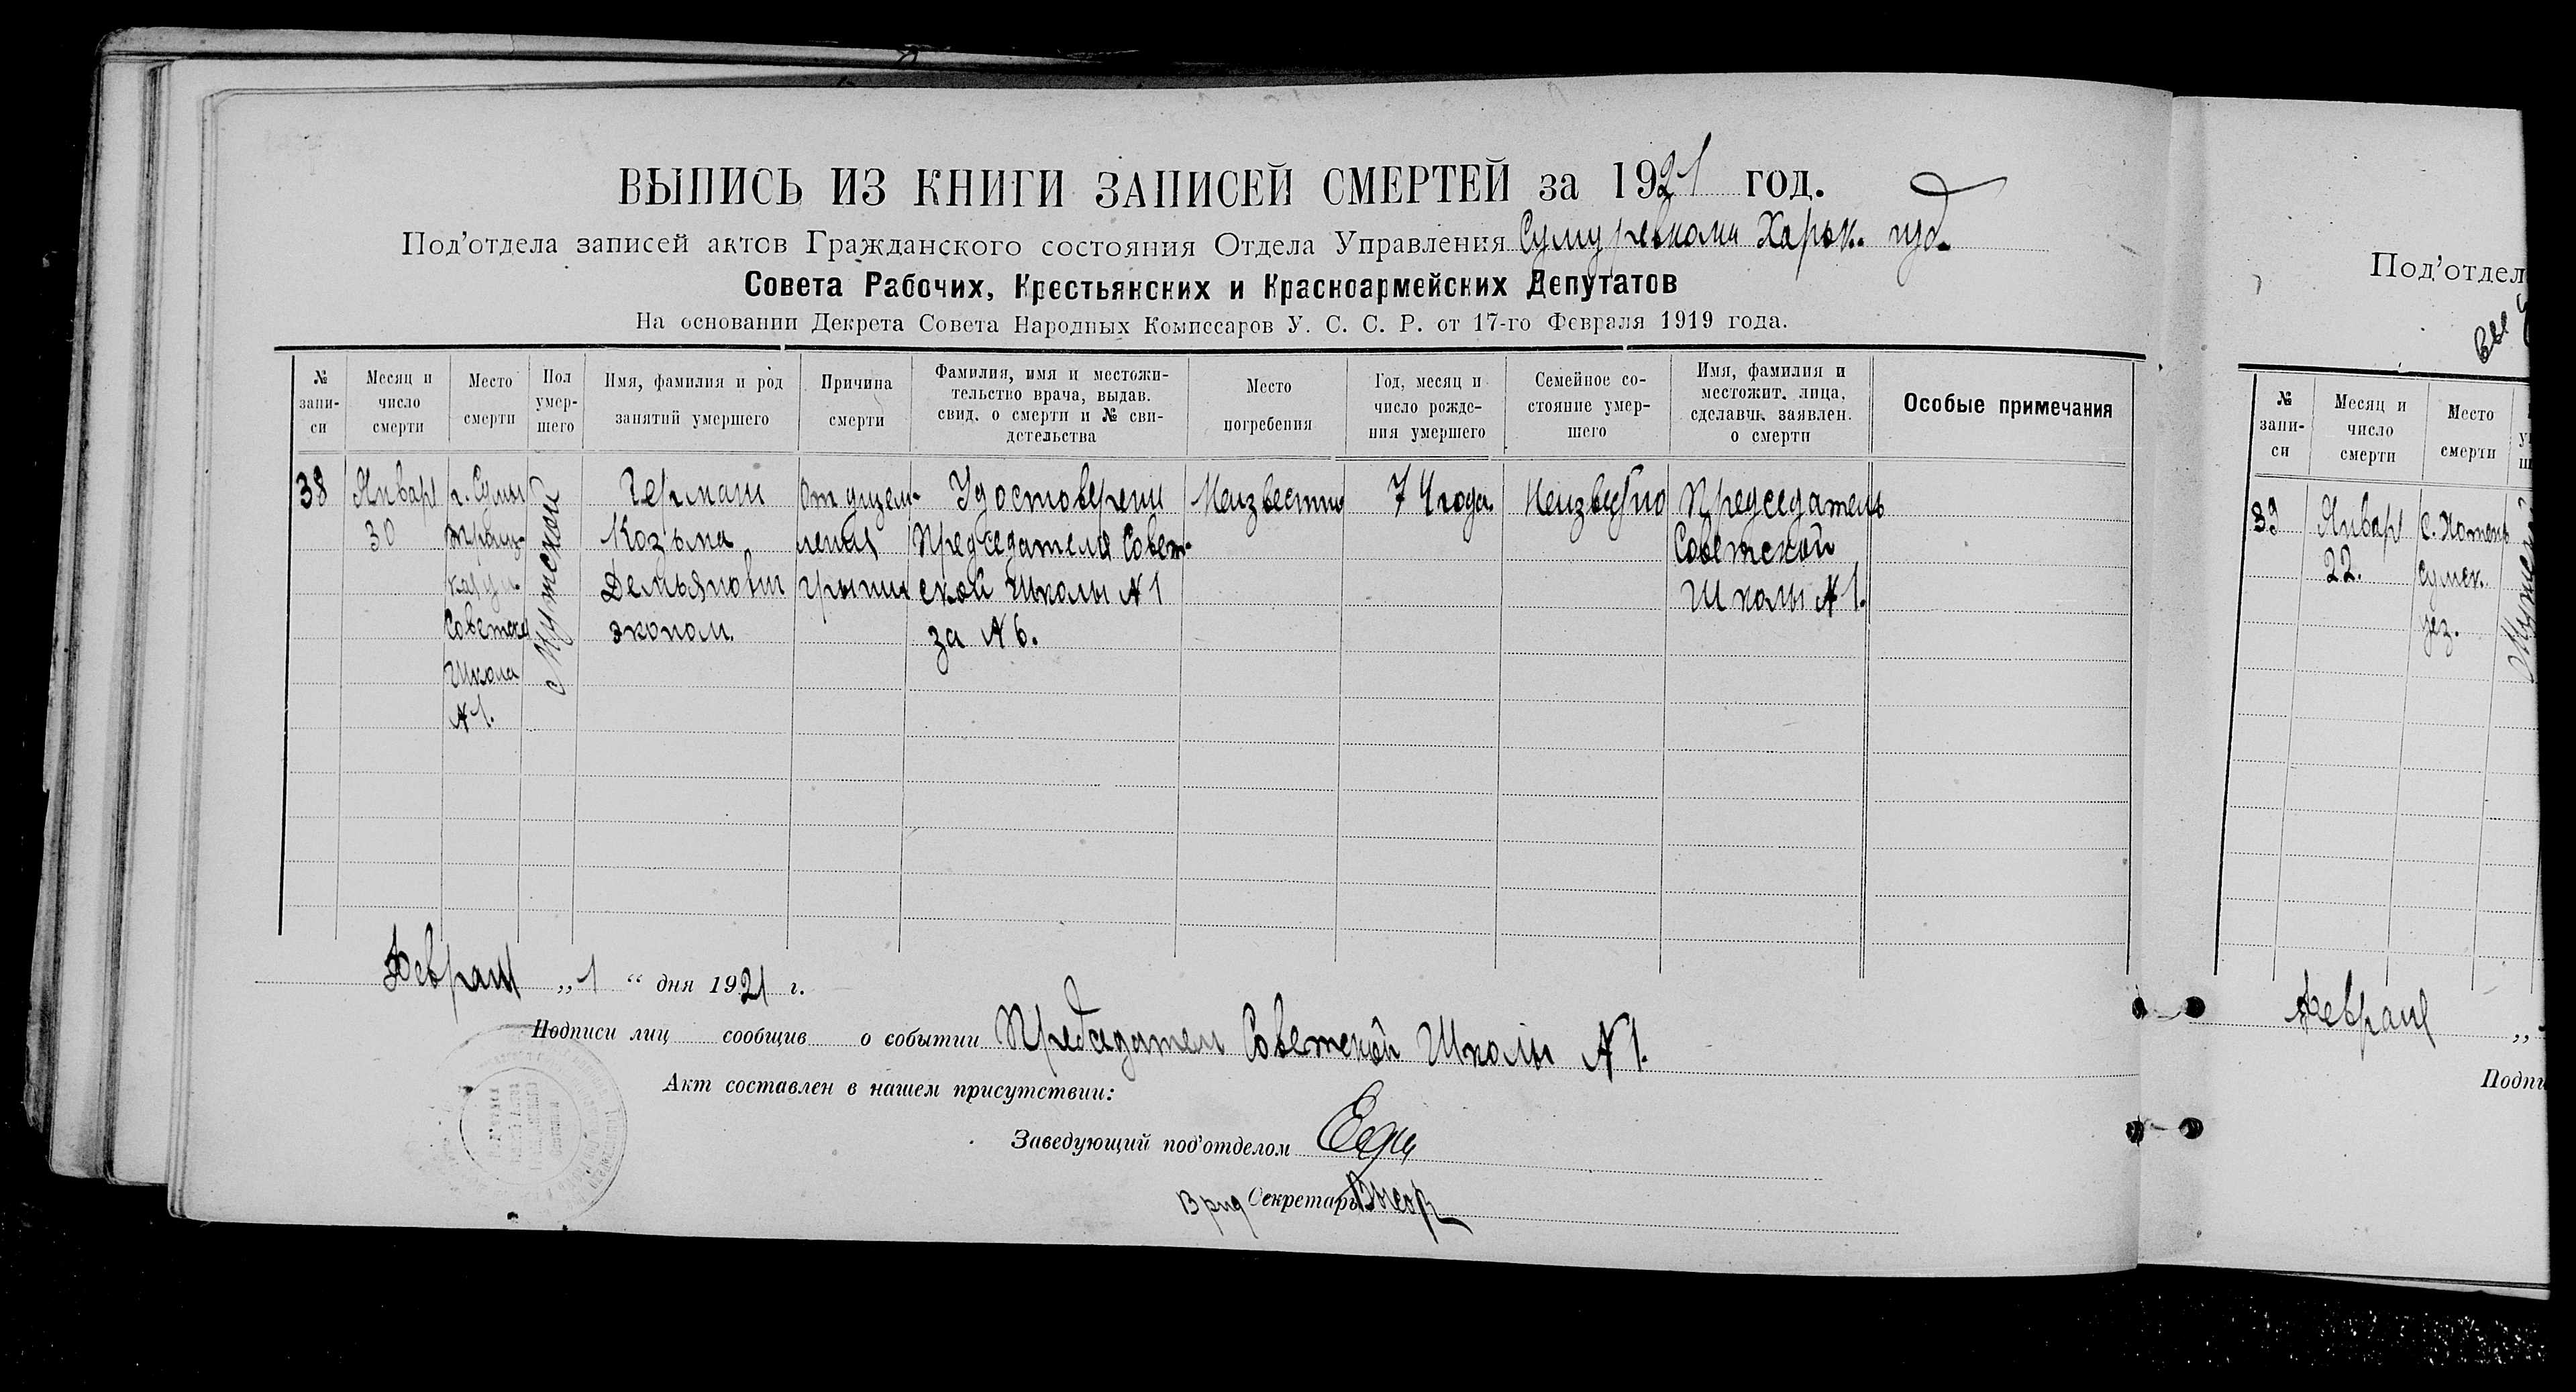 ВЫПИСЬ ИЗ КНИГИ ЗАПИСЕЙ СМЕРТЕЙ за 1921 год.
Под'отдела записей актов Гражданского состояния Отдела Управления Сумуревкома Харьк. губ.
Совета Рабочих, Крестьянских и Красноармейских Депутатов
На основании Декрета Совета Народных Комиссаров У. С. С. Р. от 17-го Февраля 1919 года.
№ запи-
си
Месяц и
число
смерти
Место
смерти
Пол
умер-
шего
Имя, фамилия и род
занятий умершего
Причина
смерти
Фамилия, имя и местожи-
тельство врача, выдав.
свид. о смерти и № сви-
детельства
Место
погребения
Год, месяц и
число рожде-
ния умершего
Семейное со-
стояние умер-
шего
Имя, фамилия и
местожит. лица,
сделавш. заявлен.
о смерти
Особые примечания
38
Января
30
г. Сумы
Советск
Школа
№ 1.
Мужской
Герман
Козьма
Демьянович
эконом.
От ущем-
ления
грыжи
Удостоверени
Председателя Совет-
ской Школы № 1
за № 6.
Неизвестно
74 года.
Неизвестно
Председатель
Советской
Школы № 1.
Февраля „ 1 “ дня 1921 г.
Подписи лиц сообщив о событии Председатель Советской Школы № 1.
Акт составлен в нашем присутствии:
Заведующий под'отделом
Врид Секретарь
Под'отдел
№
запи-
си
Месяц и
число
смерти
Место
смерти
39
Января
22.
с. Хотень
Сумск.
уез.
Мужской
Февраля „
Подпи